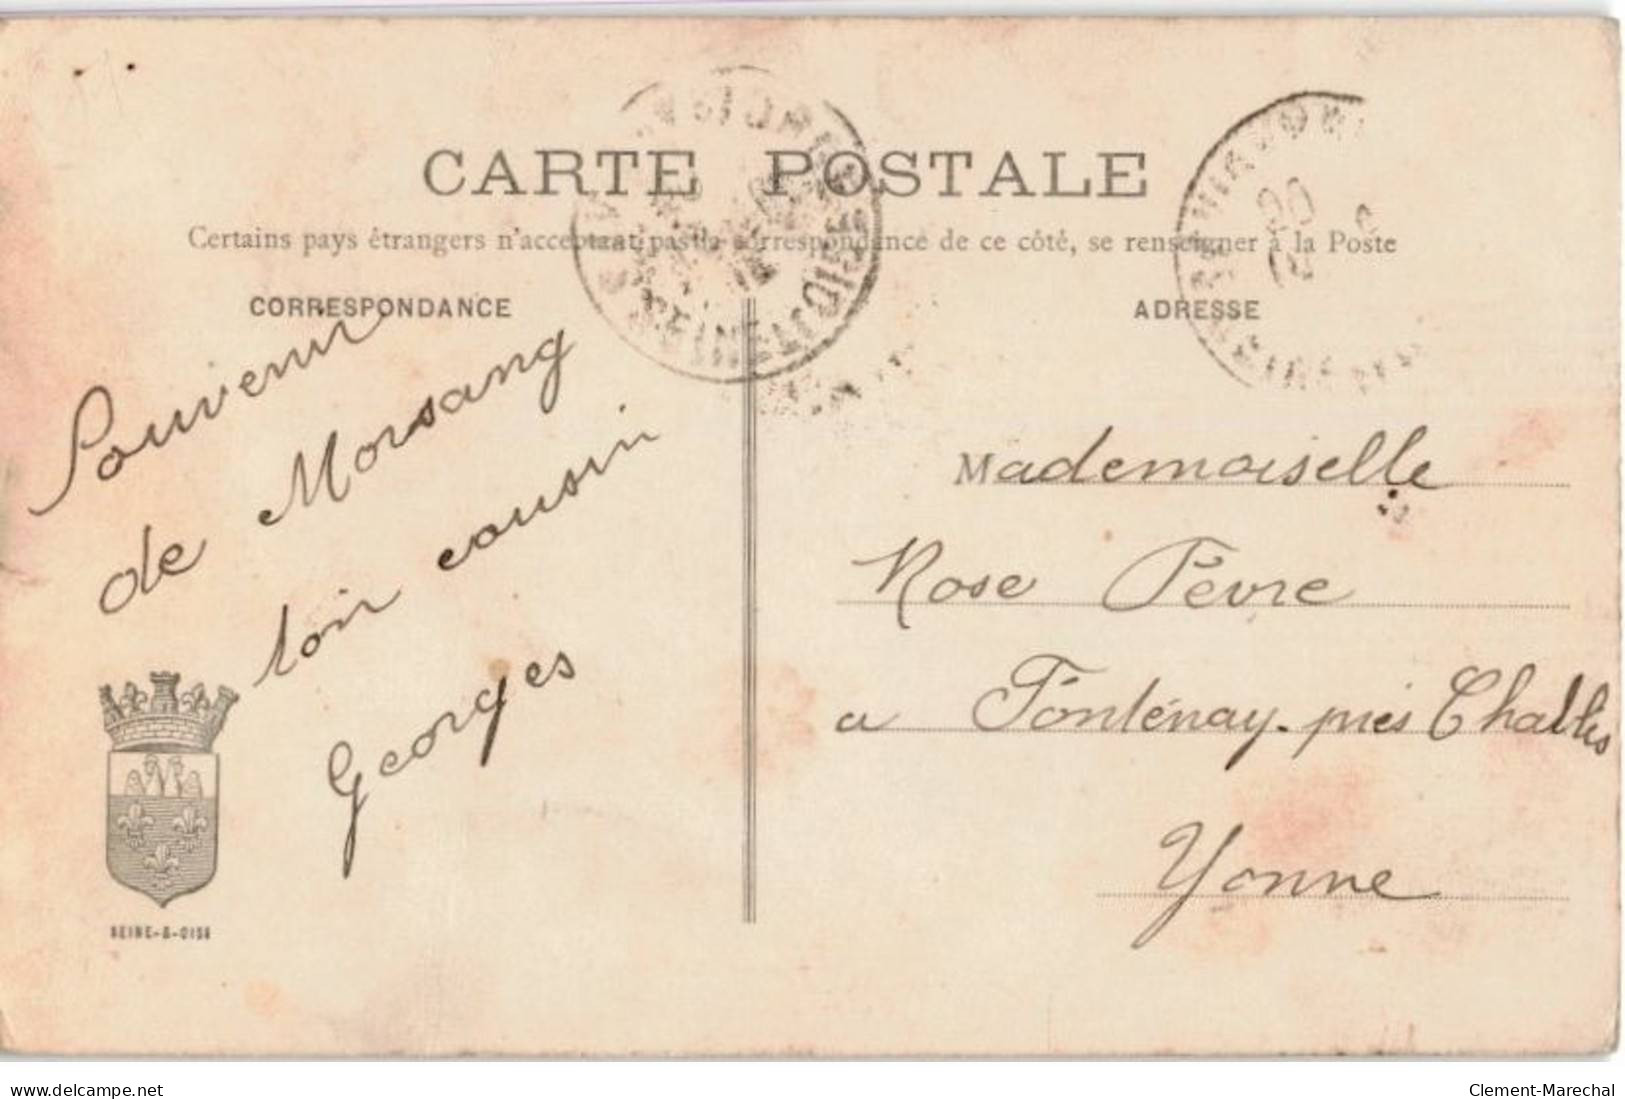 CARTE POSTALE
Certains pays étrangers n'acceptant pas la correspondance de ce côté, se renseigner à la Poste
CORRESPONDANCE
ADRESSE
Souvenir
de Morsang
ton cousin
Georges
SEINE-&-OISE
Mademoiselle
Rose Fèvre
a Fontenay près Chablis
Yonne
www.delcampe.net
Clement-Marechal